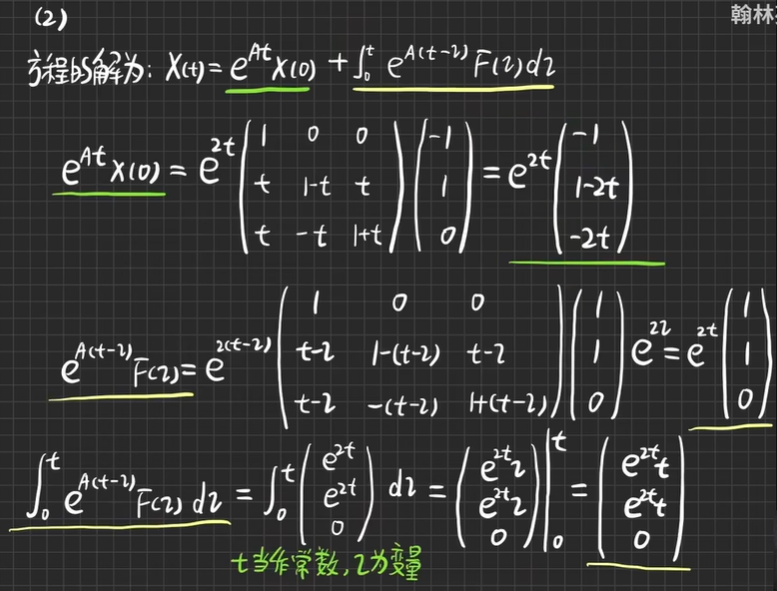 (2)
翰林
方程的解为: X(t)= e^{At}X(0) + ∫_0^t e^{A(t-τ)} F(τ)dτ
e^{At}X(0) = e^{2t} \begin{pmatrix} 1 & 0 & 0 \\ t & 1-t & t \\ t & -t & 1+t \end{pmatrix} \begin{pmatrix} -1 \\ 1 \\ 0 \end{pmatrix} = e^{2t} \begin{pmatrix} -1 \\ 1-2t \\ -2t \end{pmatrix}
e^{A(t-τ)} F(τ)= e^{2(t-τ)} \begin{pmatrix} 1 & 0 & 0 \\ t-τ & 1-(t-τ) & t-τ \\ t-τ & -(t-τ) & 1+(t-τ) \end{pmatrix} \begin{pmatrix} 1 \\ 1 \\ 0 \end{pmatrix} e^{2τ} = e^{2t} \begin{pmatrix} 1 \\ 1 \\ 0 \end{pmatrix}
∫_0^t e^{A(t-τ)} F(τ) dτ = ∫_0^t \begin{pmatrix} e^{2t} \\ e^{2t} \\ 0 \end{pmatrix} dτ = \begin{pmatrix} e^{2t}τ \\ e^{2t}τ \\ 0 \end{pmatrix} |_0^t = \begin{pmatrix} e^{2t}t \\ e^{2t}t \\ 0 \end{pmatrix}
t当作常数,τ为变量